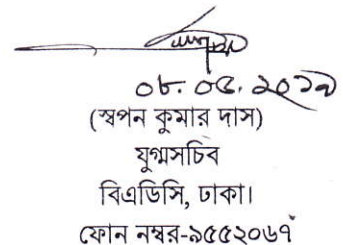 ০৮.০৫.২০১৯
(স্বপন কুমার দাস)
যুগ্মসচিব
বিএডিসি, ঢাকা।
ফোন নম্বর-৯৫৫২০৬৭